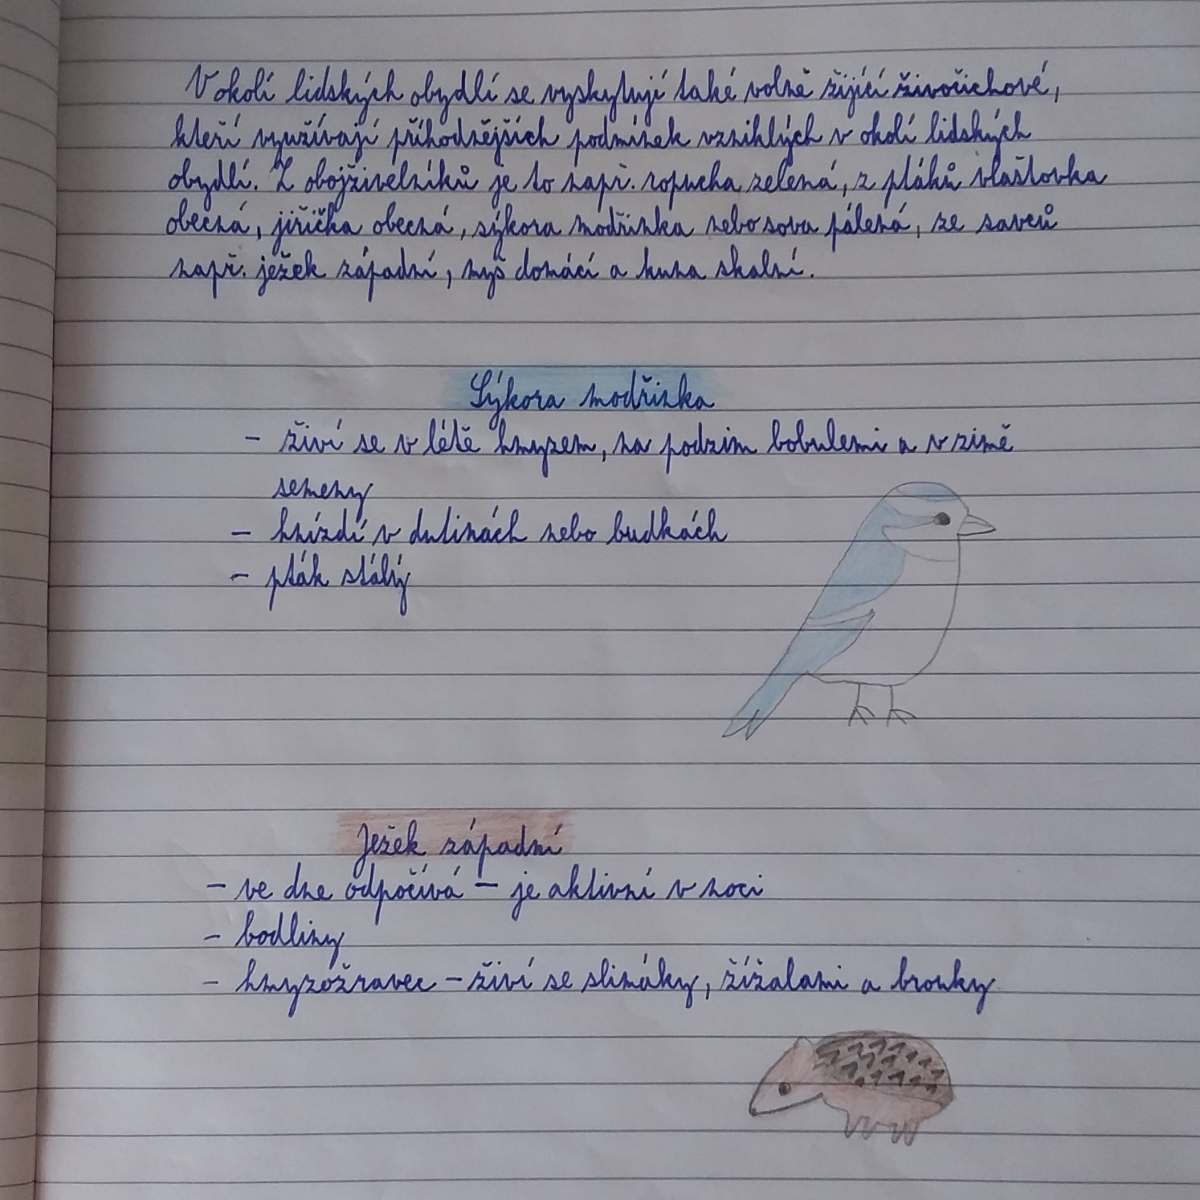 V okolí lidských obydlí se vyskytují také volně žijící živočichové,
kteří využívají příhodnějších podmínek vzniklých v okolí lidských
obydlí. Z obojživelníků je to např. ropucha zelená, z ptáků vlaštovka
obecná, jiřička obecná, sýkora modřinka nebo sova pálená, ze savců
např. ježek západní, myš domácí a kuna skalní.
Sýkora modřinka
- živí se v létě hmyzem, na podzim bobulemi a v zimě
semeny
- hnízdí v dutinách nebo budkách
- pták stálý
Ježek západní
- ve dne odpočívá - je aktivní v noci
- bodliny
- hmyzožravec - živí se slimáky, žížalami a brouky